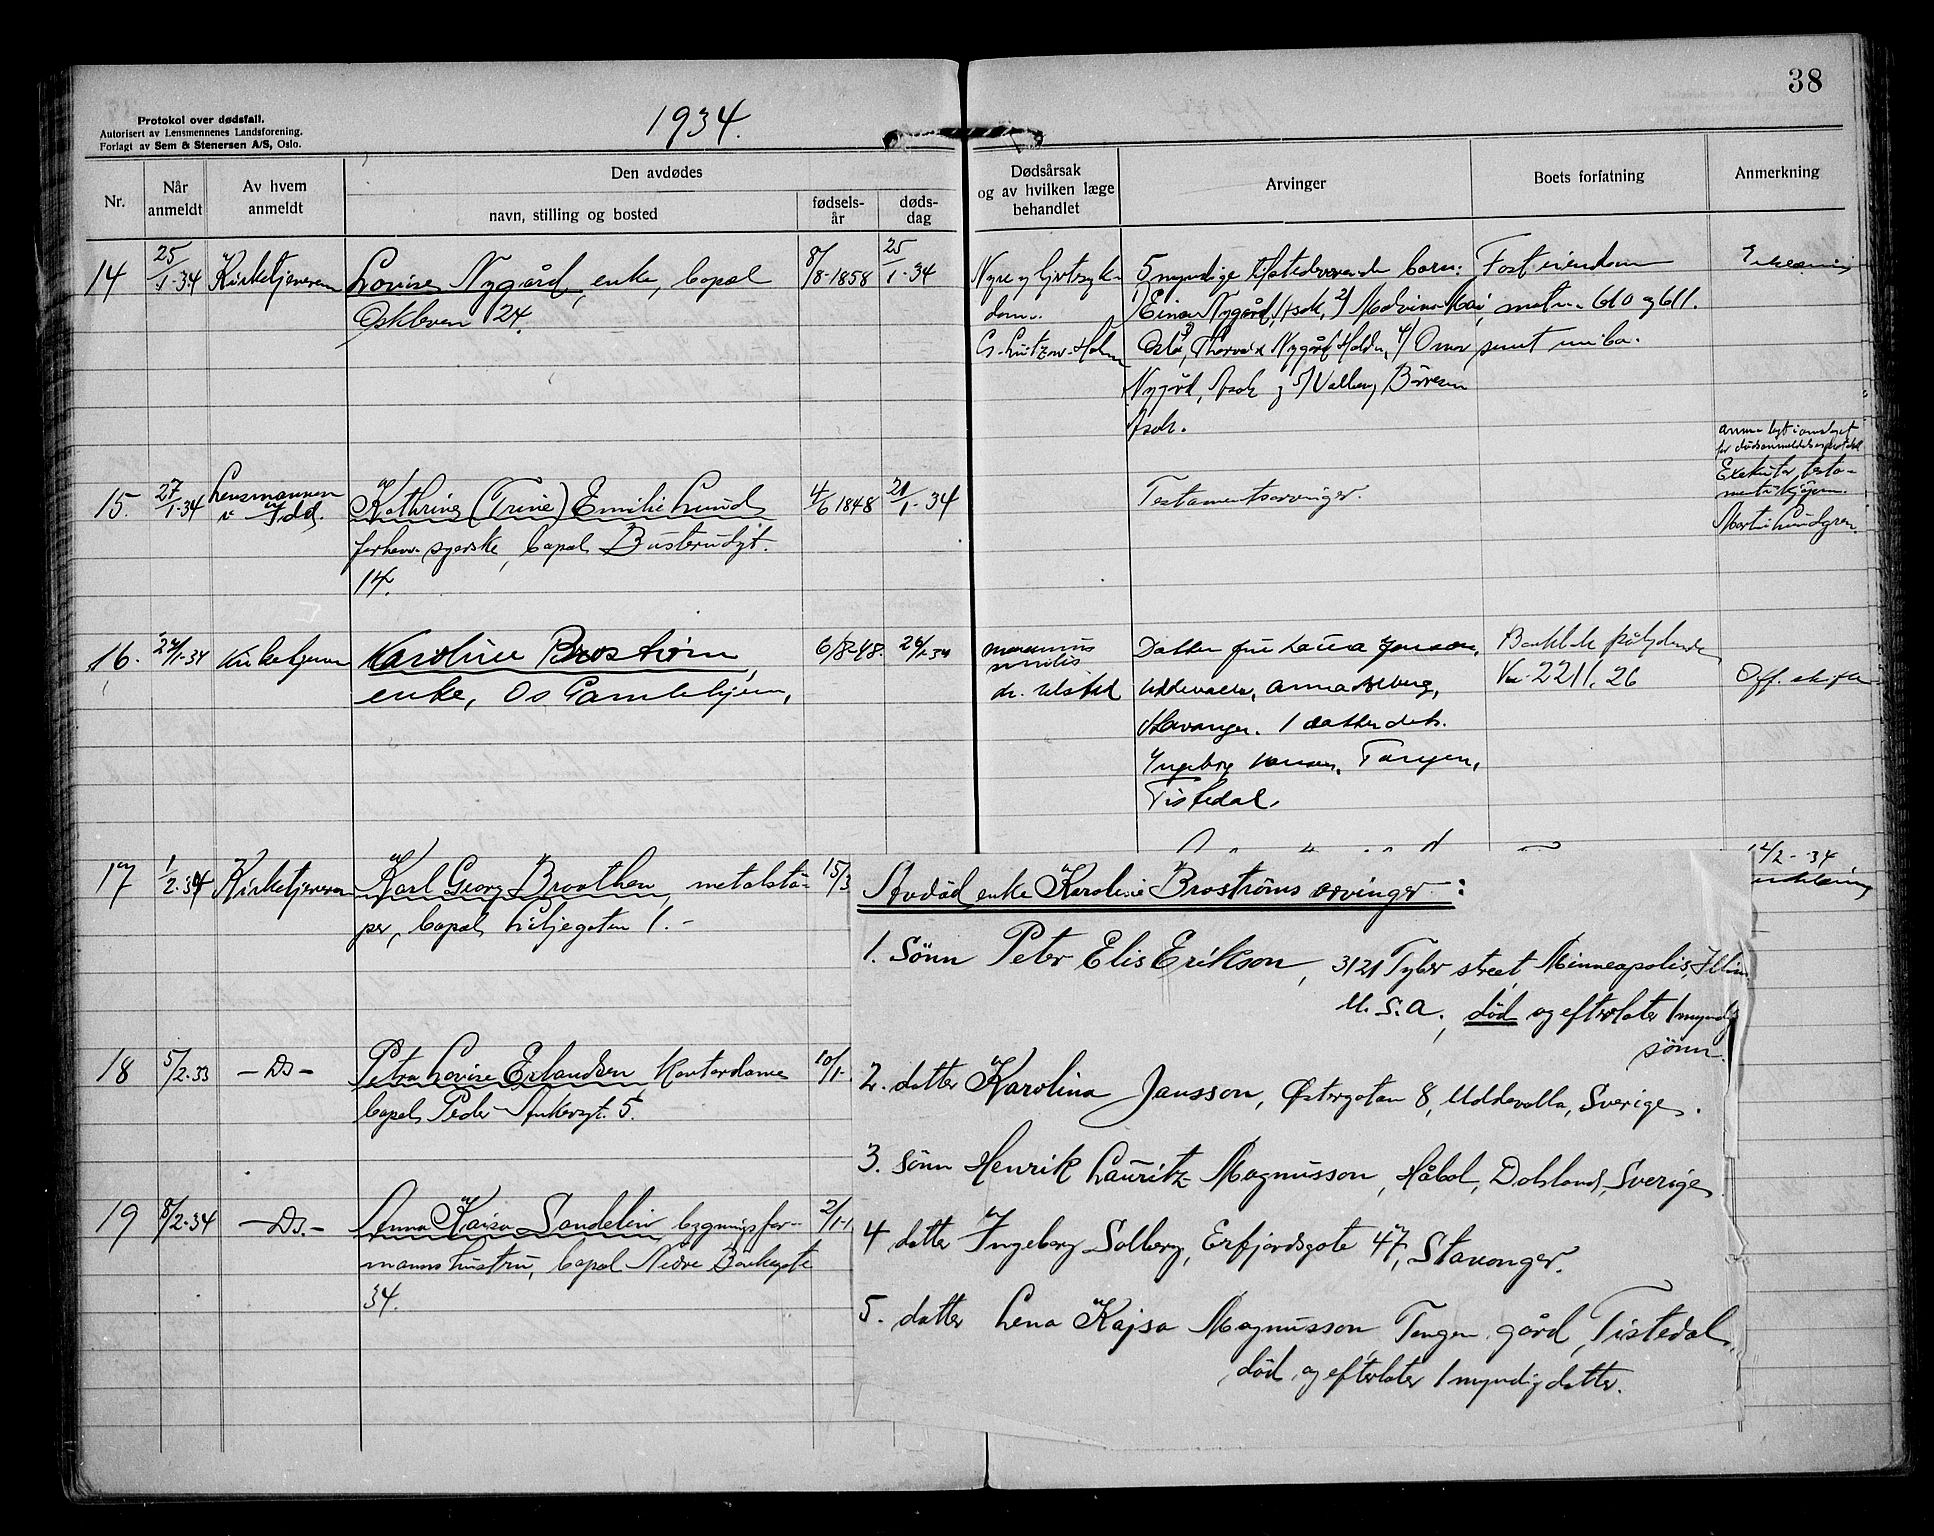 38
Protokol over dødsfall.
Autorisert av Lensmennenes Landsforening.
Forlagt av Sem & Stenersen A/S, Oslo.
1934.
Nr.
Når anmeldt
Av hvem anmeldt
Den avdødes
navn, stilling og bosted
fødselsår
dødsdag
Dødsårsak og av hvilken læge behandlet
Arvinger
Boets forfatning
Anmerkning
14 25/1-34 Kirketjeneren Lovise Nygård, enke, bopæl 8/8-1858 25/1-34
24.
5 myndige tilstedeværende barn:
1) Einar Nygård, Asak, 2)
Oslo, 3) Nygård Halden, 4)
Nygård, Asak og 5) Valborg Börresen
Asak.
Fast eiendom
matr. 610 og 611.
samt innbo.
15. 27/1-34 Lensmannen i Idd. Kathrine (Trine) Emilie Lund 4/6 1848 21/1-34
syerske, bopæl Busterudgt.
14.
Testamentsarvinger.
Martin Lundgren.
16. 27/1-34 Kirketjeneren Karoline Broström, 6/8-48. 26/1-34
enke, Os Gamlehjem,
marasmus
senilis
dr. Ulstad
Datter fru Laura Jonson,
Uddevalla, Anna
Stavanger. 1 datter
Ingeborg Tangen,
Tistedal.
Kr. 2211,26
Off. skifte
17 1/2-34 Kirketjeneren Karl Georg Braathen, metalstö- 15/3
per, bopæl Liljegaten 1.-
12/2-34
18 5/2-33 -Ds- Petra Lovise Erlandsen Kontordame 10/1-
bopæl Peder Ankersgt. 5.
19 8/2-34 -Ds.- Anna Kaisa Sandelin, bygningsfor- 2/1-1
manns hustru, bopæl Nedre Bankegate
34.
Avdød enke Karoline Broströms arvinger:
1. Sönn Peter Elis Erikson, 3121 Tyler street, Minneapolis,
U.S.A., död og efterlater 1 myndig
sönn.
2. datter Karolina Jansson, Østergatan 8, Uddevalla, Sverige.
3. sönn Henrik Lauritz Magnusson, Håbol, Dalsland, Sverige
4 datter Ingeborg Solberg, Erfjordsgate 47, Stavanger.
5. datter Lena Kajsa Magnusson, Tangen gård, Tistedal,
död, og efterlater 1 myndig datter.